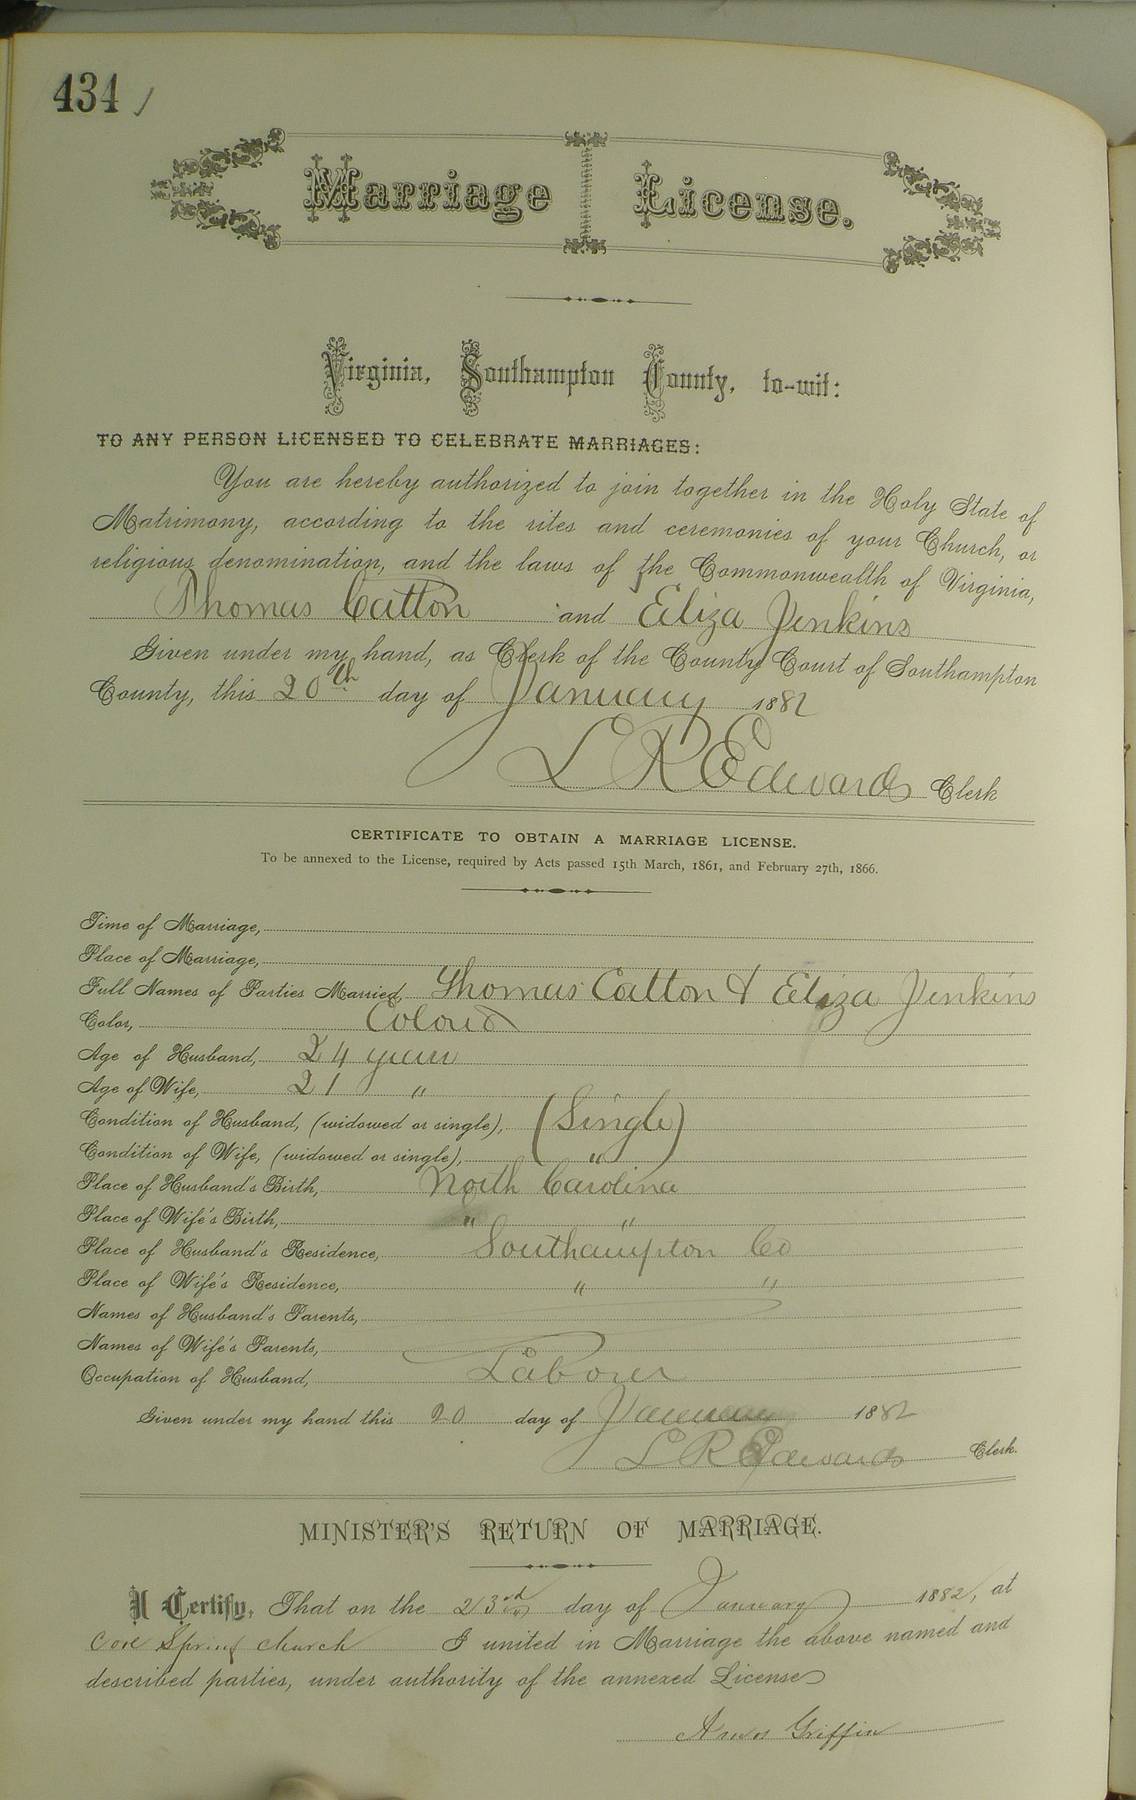 434
Marriage License.
Virginia, Southampton County, to-wit:
TO ANY PERSON LICENSED TO CELEBRATE MARRIAGES:
You are hereby authorized to join together in the Holy State of
Matrimony, according to the rites and ceremonies of your Church, or
religious denomination, and the laws of the Commonwealth of Virginia,
Thomas Catton and Eliza Jenkins
Given under my hand, as Clerk of the County Court of Southampton
County, this 20th day of January 1882
L R Edwards Clerk
CERTIFICATE TO OBTAIN A MARRIAGE LICENSE.
To be annexed to the License, required by Acts passed 15th March, 1861, and February 27th, 1866.
Time of Marriage,
Place of Marriage,
Full Names of Parties Married, Thomas Catton & Eliza Jenkins
Color, Colored
Age of Husband, 24 years
Age of Wife, 21 "
Condition of Husband, (widowed or single), (Single)
Condition of Wife, (widowed or single), "
Place of Husband's Birth, North Carolina
Place of Wife's Birth, " "
Place of Husband's Residence, Southampton Co
Place of Wife's Residence, " "
Names of Husband's Parents,
Names of Wife's Parents,
Occupation of Husband, Laborer
Given under my hand this 20 day of January 1882
L R Edwards Clerk.
MINISTER'S RETURN OF MARRIAGE.
I Certify, That on the 23rd day of January 1882, at
Spring church I united in Marriage the above named and
described parties, under authority of the annexed License
Amos Griffin